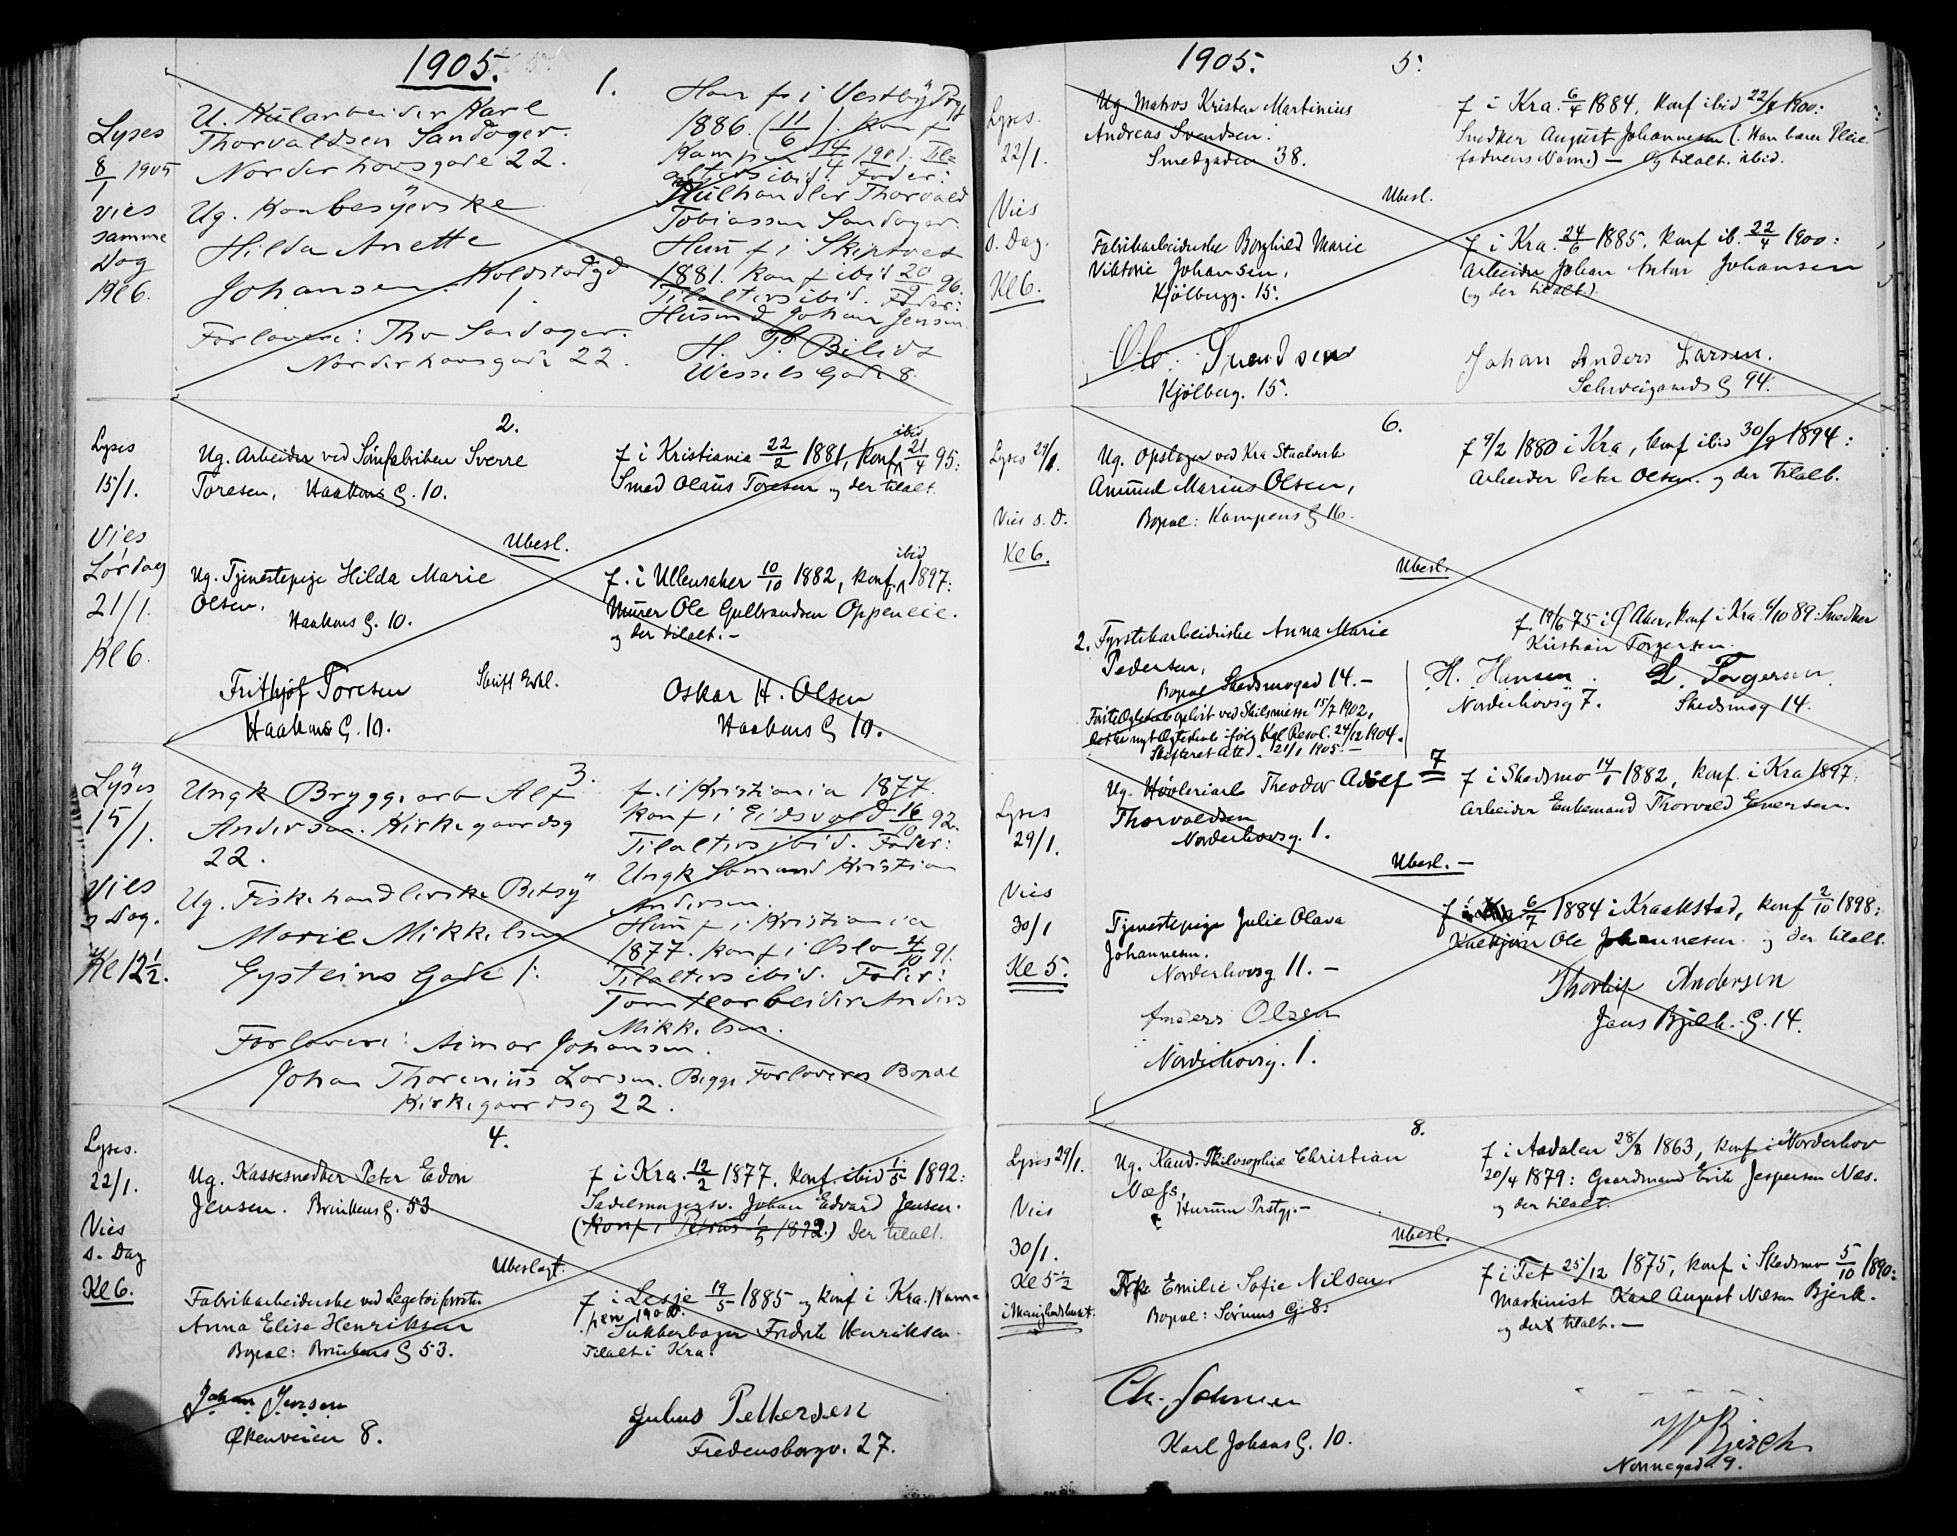 1905.
1.
Lyses
8/1 1905
Vies
samme
Dag
Kl 6.
U. Kularbeider Karl
Thorvaldsen Sandager.
Norderhovsgade 22.
Ug.
Hilda Anette
Johansen. Koldstadgd
1.
Forlovere: Tho Sandager.
Norderhovsgade 22.
Han f. i Vestby
1886. (11/6). Konf
Kampen 14/4 1901. Til-
alters ibid. Fader:
Kulhandler Thorvald
Tobiassen Sandager.
Hun f i Skiptvet
1881. Konf ibid 20/9 96.
Tilalters ibid. Fader:
Husmd Johan Jensen.
H. T.
Wessels Gade 8.
2.
Lyses
15/1.
Vies
Lørdag
21/1.
Kl 6.
Ug. Arbeider ved Sømfabriken Sverre
Toresen, Haakons G. 10.
f i Kristiania 22/2 1881, Konf ibid 21/4 95:
Smed Olaus Toresen og der tilalt.
Ubesl.
Ug. Tjenestepige Hilda Marie
Olsen,
Haakons G. 10.
f. i Ullensaker 10/10 1882, konf. ibid 1897:
Murer Ole Gulbrandsen Oppeneie.
og der tilalt. -
Frithjof Toresen
Haakons G. 10.
Skrift
Oskar H. Olsen
Haakons G 10.
3.
Lyses
15/1.
Vies
s Dag.
Kl 12½.
Ungk Bryggearb Alf
Andersen. Kirkegaardsg
22.
Ug. Fiskehandlerske Betsy
Marie Mikkelsen
Eysteins Gade 1.
f. i Kristiania 1877.
Konf i Eidsvold 16/10 92.
Tilalters ibid. Fader:
Ungk Sømand Kristian
Andersen.
Hun f i Kristiania
1877. Konf i Oslo 4/10 91.
Tilalters ibid. Fader:
Tomtearbeider Anders
Mikkelsen.
Forlovere: Aimar Johansen.
Johan Thorenius Larsen. Begge Forloveres Bopæl
Kirkegaardsg 22.
4.
Lyses.
22/1.
Vies
s. Dag
Kl 6.
Ug. Kassesnedker Peter Edon
Jensen. Brinkens G. 53
f i Kra. 12/2 1877. Konf. ibid 1/5 1892:
Sadelmagersv. Johan Edvard Jensen.
(Konf i Petrus 1/5 1892.) Der tilalt.
Ubeslægt.
Fabrikarbeiderske ved
Anna Elise Henriksen
Bopæl: Brinkens G 53.
f i Lesje 19/5 1885 og konf i Kra. /Kam-
pen 1900.
Sukkerbager Fredrik Henriksen.
Tilalt i Kra.
Johan Jensen
Økernveien 8.
Julius Pettersen
Fredensborgv. 27.
1905.
5.
Lyses.
22/1.
Vies
s. Dag.
Kl 6.
Ug. Matros Kristen Martinius
Andreas Svendsen.
Smedgaden 38.
f i Kra. 6/4 1884, Konf ibid 22/4 1900:
Snedker August Johannesen (. Han bærer Pleie-
faderens Navn.) - og tilalt. ibid.
Ubesl.
Fabrikarbeiderske Borghild Marie
Viktorie Johansen,
Kjølbergg. 15.
f i Kra. 24/6 1885. Konf ib. 22/4 1900:
Arbeider Johan Anton Johansen
(og der tilalt.)
Svendsen
Kjølberg. 15.
Johan Anders Larsen.
Schweigaards G 94.
6.
Lyses 29/1.
Vies s. D.
Kl 6.
Ug. Opslager ved Kra Staalverk
Amund Marius Olsen,
Bopæl: Kampens G 16.
f 9/2 1880 i Kra, konf ibid 30/9 1894:
Arbeider Peter Olsen. og der tilalt.
Ubesl.
2. Fyrstikarbeiderske Anna Marie
Pedersen,
Bopæl Skedsmogad 14. -
Første Egteskab opløst ved Skilsmisse 15/7 1902,
nyt Egteskab ifølg Kgl Resol. 24/12 1904.
Skifteret Atted. 21/1 1905. -
f. 19/6 75 i Ø Aker, Konf i Kra. 6/10 89: Snedker
Kristian Torgersen.
H. Hansen.
Norderhovsg 7.
L. Torgersen.
Skedsmog 14.
7
Lyses
29/1.
Vies
30/1
Kl 5.
Ug. Høvleriarb Theodor Adolf
Thorvaldsen
Norderhovsg. 1.
f i Skedsmo 14/1 1882, Konf. i Kra 1897:
Arbeider Enkemand Thorvald Evensen.
Ubesl. -
Tjenestepige Julie Olava
Johannesen.
Norderhovsg 11. -
f 6/7 1884 i Kraakstad, Konf 2/10 1898:
Ole Johannesen. og der tilalt.
Anders Olsen
Norderhovsg. 1.
Thorleif Andersen
Jens Bjelk. G. 14.
8.
Lyses 29/1.
Vies
30/1.
Kl 5½
i Menighedshuset.
Ug. Kand. Philosophiæ Christian
Næss,
Hurum Prstgj. -
f i Aadalen 28/8 1863, konf i Norderhov
20/4 1879: Gaardmand Erik Jespersen Næs.
og der tilalt.
Ubesl.
Frk Emilie Sofie Nilsen
Bopæl: Sørums G. 8.
f i Fet 25/12 1875, Konf i Skedsmo 5/10 1890:
Maskinist Karl August Nilsen Bjerk.
og der tilalt. -
Ch.
Karl Johans G. 10.
Nonnegad 9.